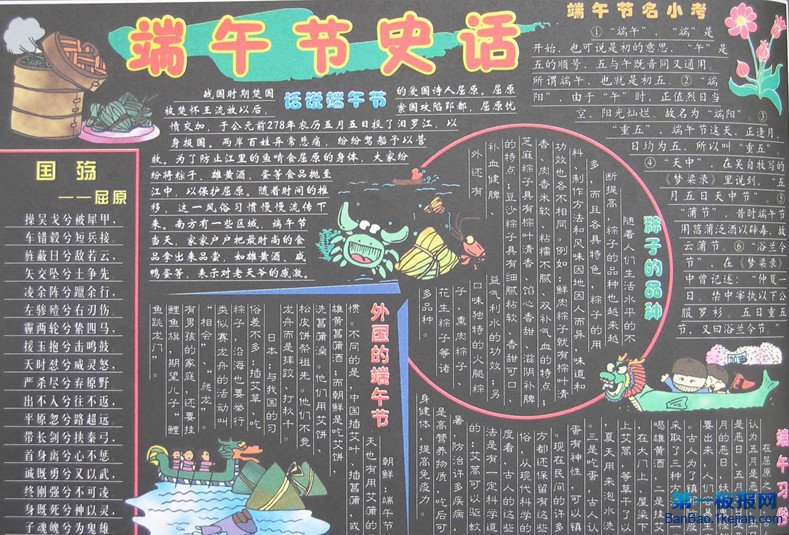 端午节史话
话说端午节
战国时期楚国
的爱国诗人屈原。屈原
被楚怀王流放以后,
愤交加,于公元前278年农历五月五日投了汨罗江,以
身报国。两岸百姓异常悲痛,纷纷驾船予以营
救。为了防止江里的鱼啃食屈原的身体,大家纷
纷将粽子、雄黄酒、蛋等食品抛至
江中,以保护屈原。随着时间的推
移,这一风俗习惯慢慢流传下
来。南方有一些区域,端午节
当天,家家户户把最时尚的食
品拿出来品尝,如雄黄酒、咸
鸭蛋等,表示对老天爷的感激。
端午节名小考
①“端午”,“端”是
开始,也可说是初的意思,“午”是
五的顺号,五与午既音同又通用,
所谓端午,也就是初五。②“端
阳”,由于“午”时,正值烈日当
空,阳光灿烂,故名为“端阳”③
“重五”,端午节这天,正逢月、
日均为五,所以叫“重五”
④“天中”,在吴自牧写的
《梦梁录》里说到,“五
月五日天中节”。⑤
“蒲节”,昔时端午节
用菖蒲泛酒以辟毒,故
云蒲节。⑥“浴兰令
节”,在《梦梁录》
中曾记述:“仲夏一
日,禁中审执以下公
服罗衫。五日重五
节,又曰浴兰令节。”
国殇
——屈原
操吴戈兮被犀甲,
车错毂兮短兵接,
旌蔽日兮敌若云,
矢交坠兮士争先
凌余阵兮躐余行,
左骖殪兮右刃伤
霾两轮兮絷四马,
援玉抱兮击鸣鼓
天时怼兮威灵怒,
严杀尽兮弃原野
出不入兮往不返,
平原忽兮路超远
带长剑兮挟秦弓,
首身离兮心不惩
诚既勇兮又以武,
终刚强兮不可凌
身既死兮神以灵,
子魂魄兮为鬼雄
粽子的品种
随着人们生活水平的不
断提高,粽子的品种也越来越
多,而且各具特色,粽子的用
料、制作方法和风味因地因人而异,味道和
功效也各不相同。例如:鲜肉粽子就有粽叶清
香、肉香米软、粘糯不腻、双补气血的特点;
芝麻粽子具有粽叶清香、馅心香甜、滋阴补脾
的特点;豆沙粽子具有细腻粘软、香甜可口、
补血健脾、
益气利水的功效;另
外还有
口味独特的火腿粽
子、熏肉粽子、
花生粽子等诸
多品种
外国的端午节
朝鲜:端午节这
天也有用艾蒲的习
惯。不同的是,中国插艾叶、插菖蒲或
雄黄菖蒲酒;而朝鲜是吃艾饼、
洗菖蒲澡。他们用艾饼、
松皮饼祭祖先。他们不竞
龙舟而是摔跤、打秋千。
日本:与我国的习
俗差不多,插艾草、吃
粽子,沿海也要举行
类似赛龙舟的活动叫
“相会”、“爬龙”。
有男孩的家庭,还要挂
鲤鱼旗,期望儿子“鲤
鱼跳龙门”。
端午习俗
喝雄黄酒,二是挂艾
在大门上、屋梁下
上艾蒿等草。等干了以
夏天用来泡水洗
三是吃蛋。古人认
蛋有神性,可以镇
现在民间的许多
方都还保留有这些
俗,从现代科学的
度看,古人的这些
法是有一定科学道
的:艾蒿可以驱蚊
暑、防治许多疾病,
是高营养物质,吃后可
身健体、提高免疫力。
第一板报网
BanBao.fkejian.com